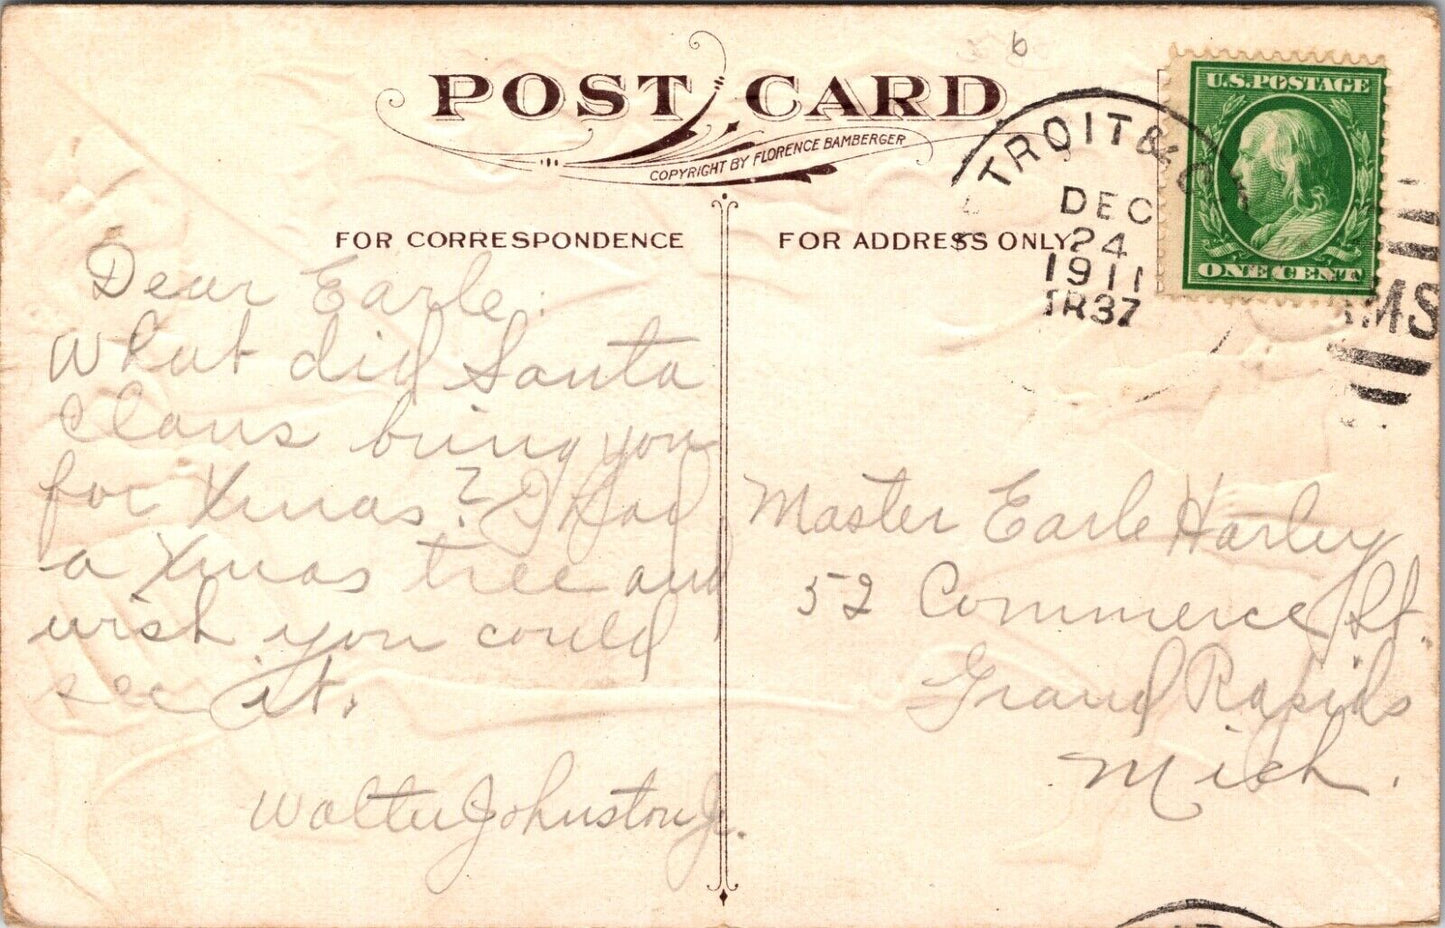 POST CARD
COPYRIGHT BY FLORENCE BAMBERGER
FOR CORRESPONDENCE
Dear Earle:
What did Santa
Claus bring you
for Xmas? I had
a Xmas tree and
wish you could
see it.
Walter Johnston Jr.
FOR ADDRESS ONLY
6
TROIT & C
DEC
24
1911
TR37
U.S. POSTAGE
ONE CENT
RMS
Master Earle Harley
52 Commerce St.
Grand Rapids
Mich.